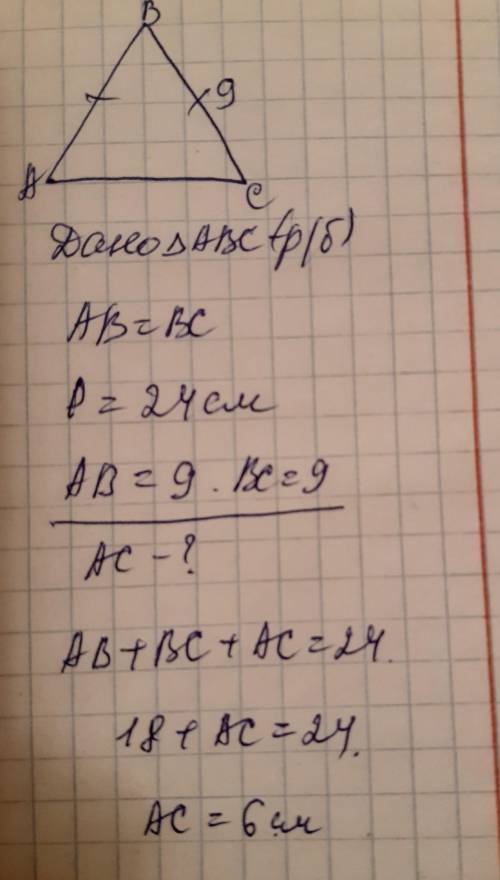 B
9
A
C
Дано △ABC (р/б)
AB = BC
P = 24 см
AB = 9. BC = 9
AC - ?
AB + BC + AC = 24.
18 + AC = 24.
AC = 6 см